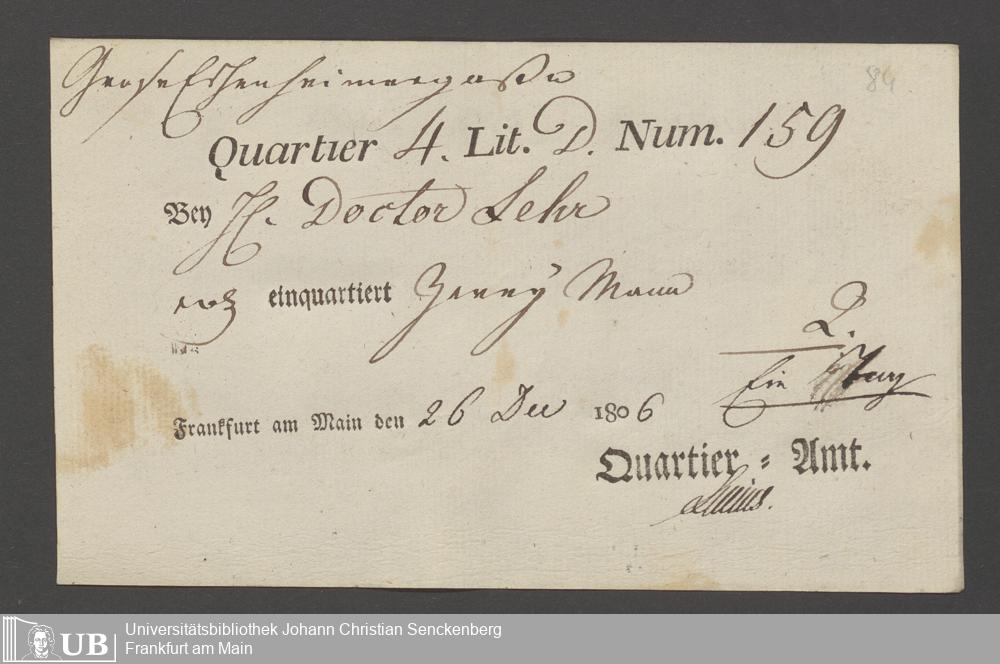 Grose Eschenheimergaße
84
Quartier 4. Lit. D. Num. 159
Bey H. Doctor Lehr
einquartiert Zwey Mann
2.
Ein Tag
Frankfurt am Main den 26 Dec 1806
Quartier = Amt.
UB Universitätsbibliothek Johann Christian Senckenberg
Frankfurt am Main